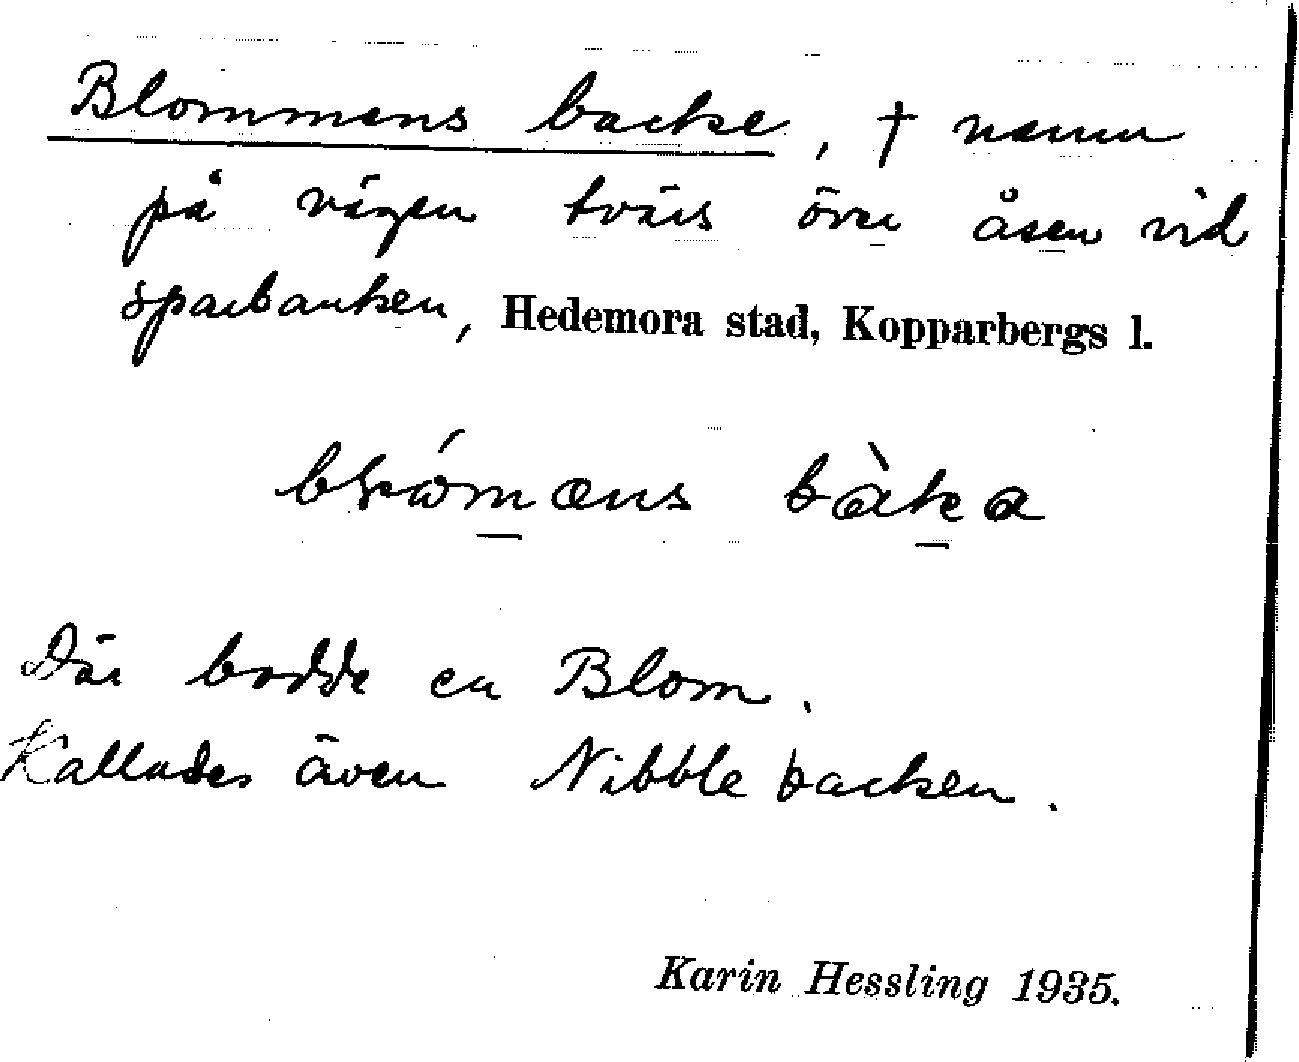 Blommens backe, † namn
på vägen tvärs över åsen vid
sparbanken, Hedemora stad, Kopparbergs l.
Där bodde en Blom.
Kallades även Nibble backen.
Karin Hessling 1935.